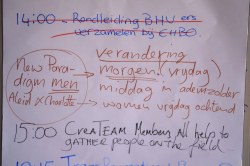 14:00 - Rondleiding BHV'ers
verzamelen bij EHBO.
verandering
New Para-
digm men
Alaid & Charlotte
morgen (vrijdag)
middag in adem
women vrijdag ochtend
15.00 CreaTEAM Members All help to
GATHER PEOPLE ON the field